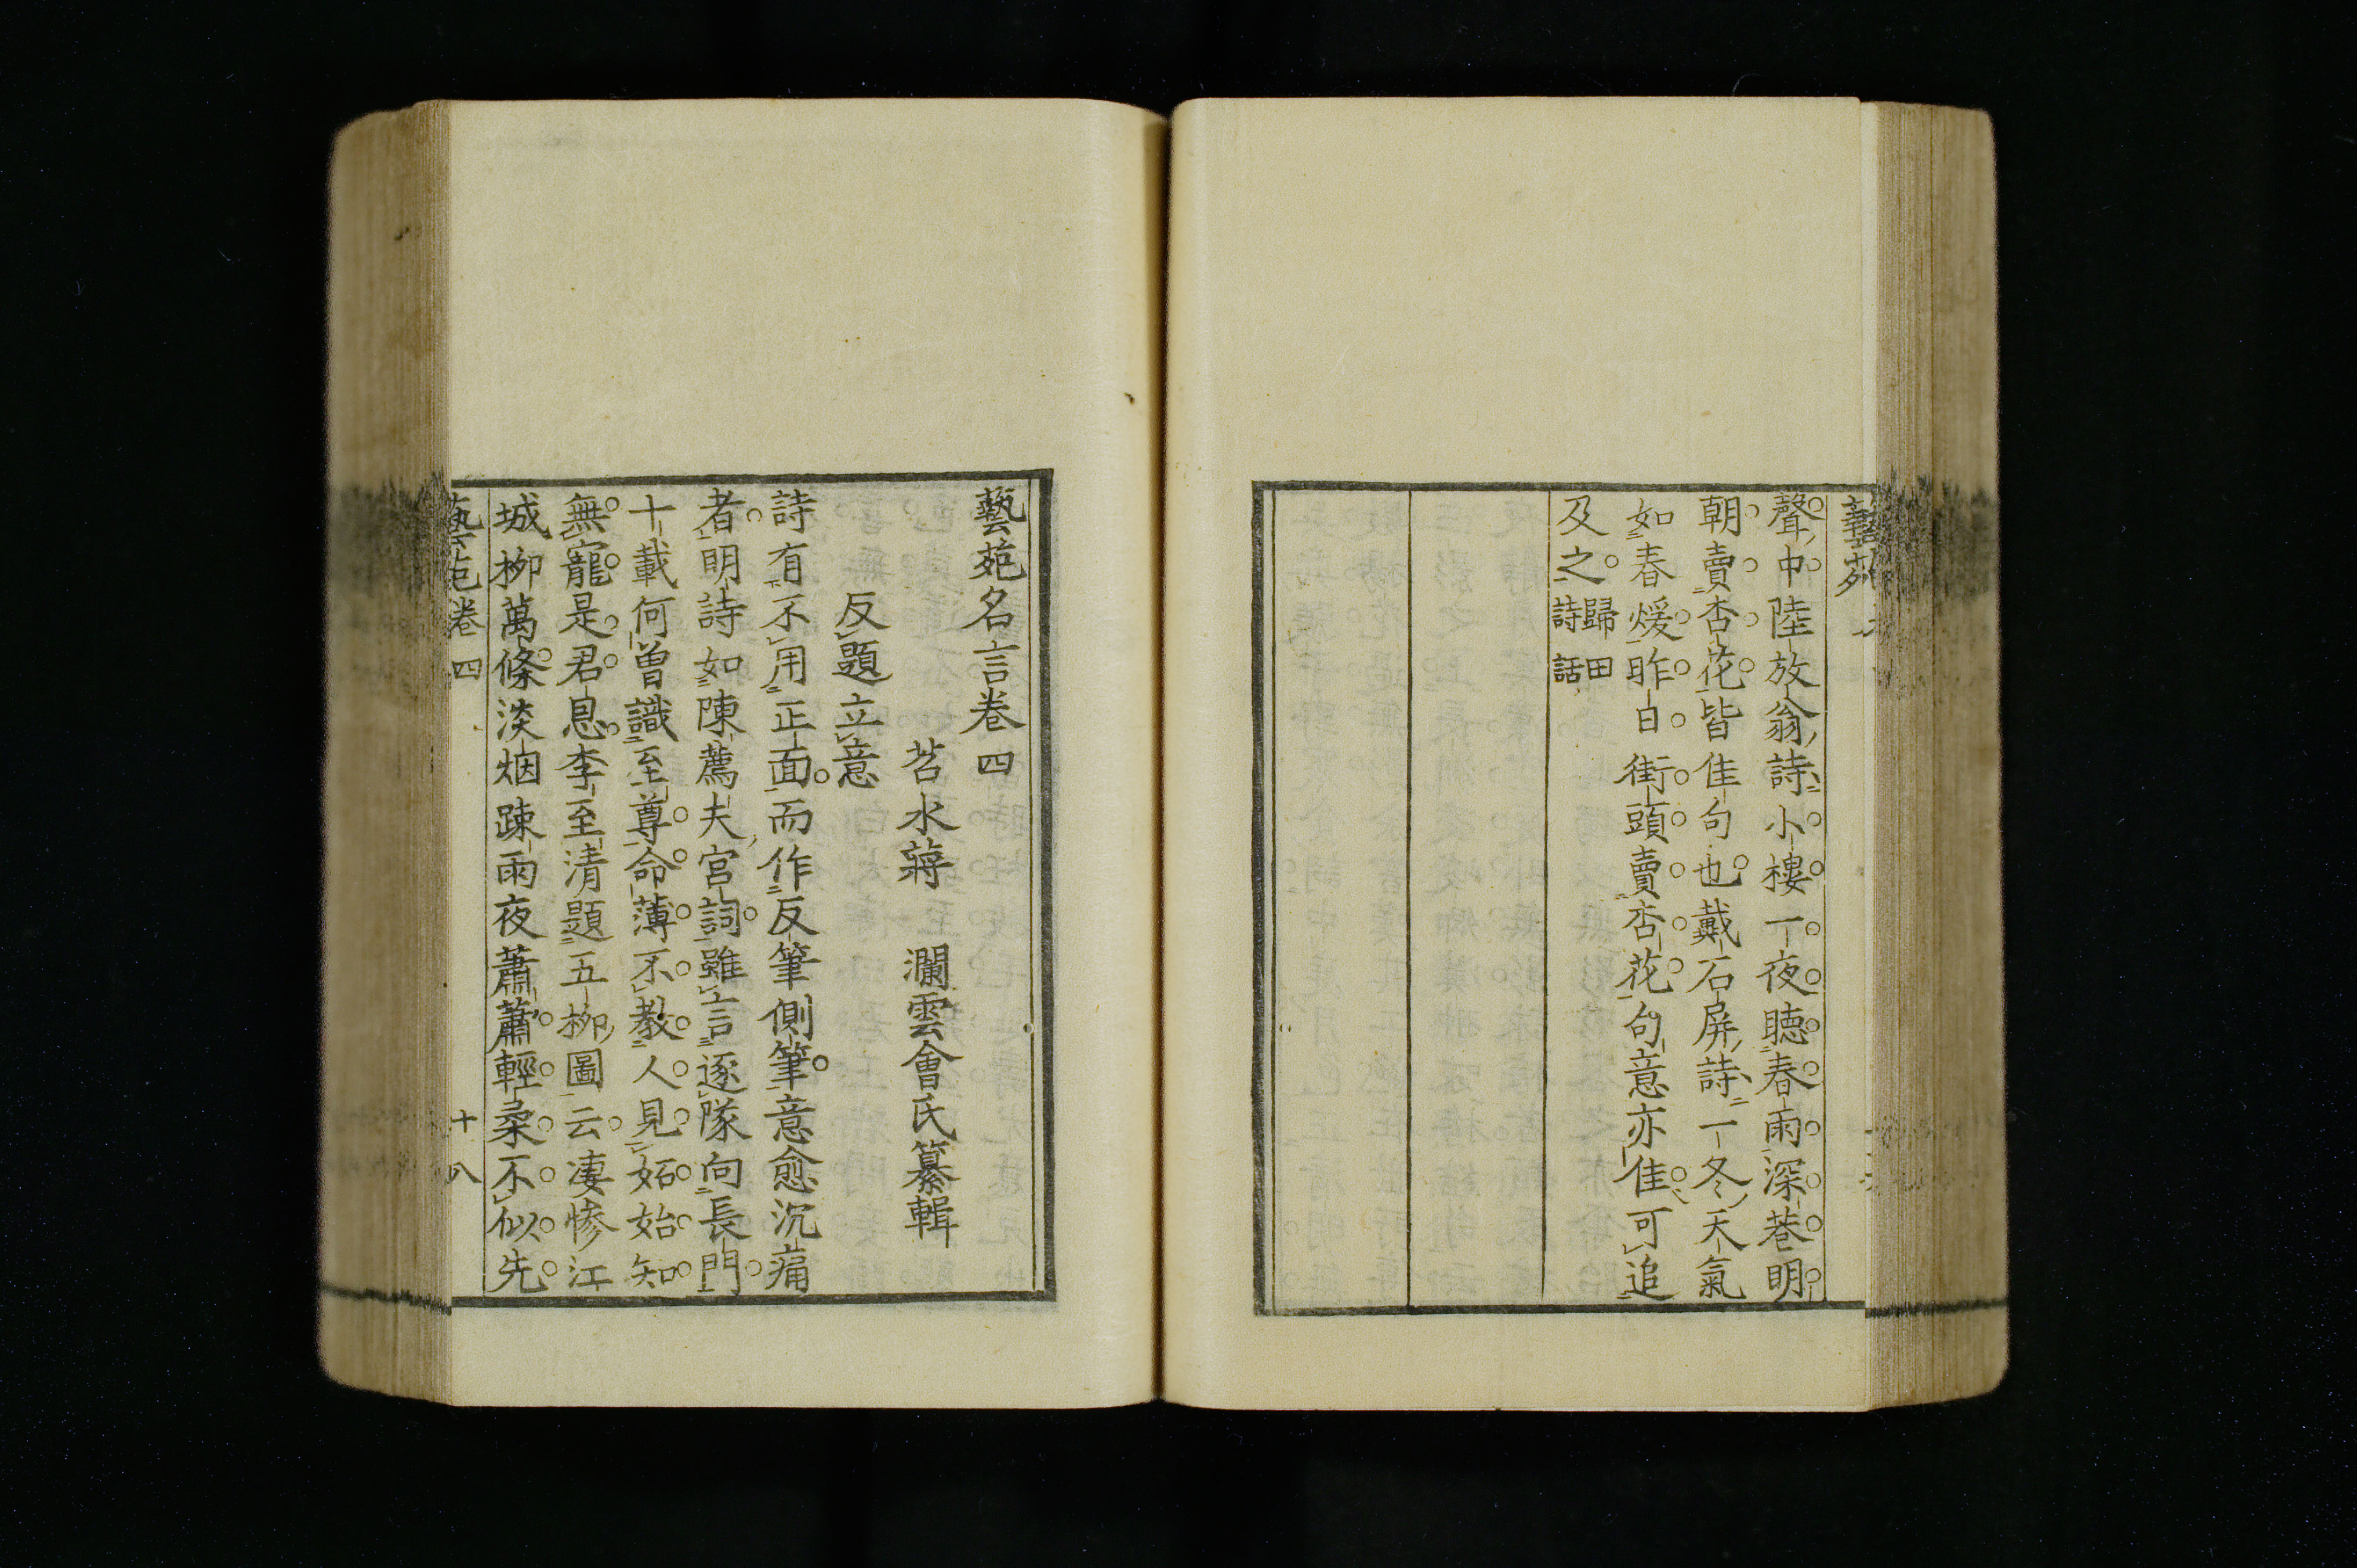 聲中陸放翁詩小樓一夜聴春雨深巷明
朝賣杏花皆佳句也戴石屏詩一冬天氣
如春煖昨日街頭賣杏花句意亦佳可追
及之歸田詩話
藝苑名言卷四
苕水蔣 瀾雲會氏纂輯
反題立意
詩有不用正面而作反筆側筆意愈沉痛
者明詩如陳薦夫宮詞雖言逐隊向長門
十載何曾識至尊命薄不教人見妬始知
無寵是君恩李至清題五柳圖云凄惨江
城柳萬條淡烟踈雨夜蕭蕭輕柔不似先
藝苑卷四 十八